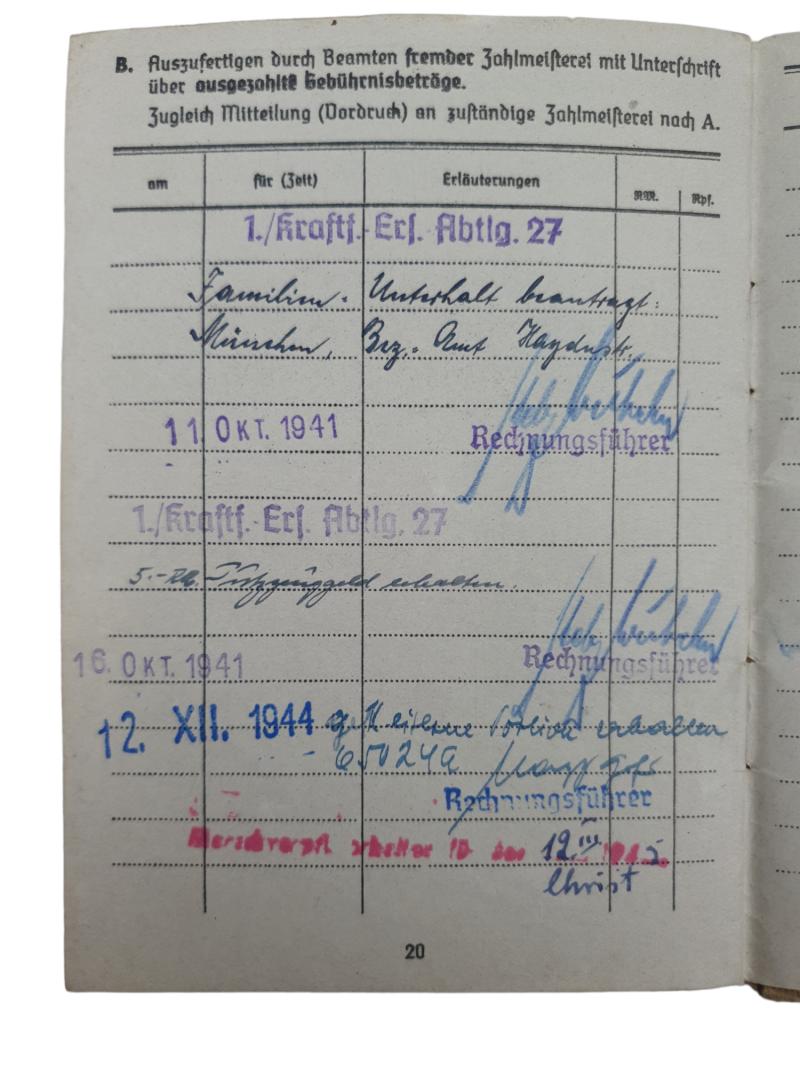 B. Auszufertigen durch Beamten fremder Zahlmeisterei mit Unterschrift
über ausgezahlte Gebührnisbeträge.
Zugleich Mitteilung (Vordruck) an zuständige Zahlmeisterei nach A.
am für (Zeit) Erläuterungen RM. Rpf.
1./Kraftf.-Ers. Abtlg. 27
Familien- Unterhalt beantragt:
München, Bez.- Amt Haydnstr.
11 OKT. 1941
Rechnungsführer
1./Kraftf.-Ers. Abtlg. 27
5.- RM. erhalten.
16. OKT. 1941
Rechnungsführer
12. XII. 1944 eiserne Portion erhalten
Rechnungsführer
Marschverpfl. erhalten 12
Christ
20